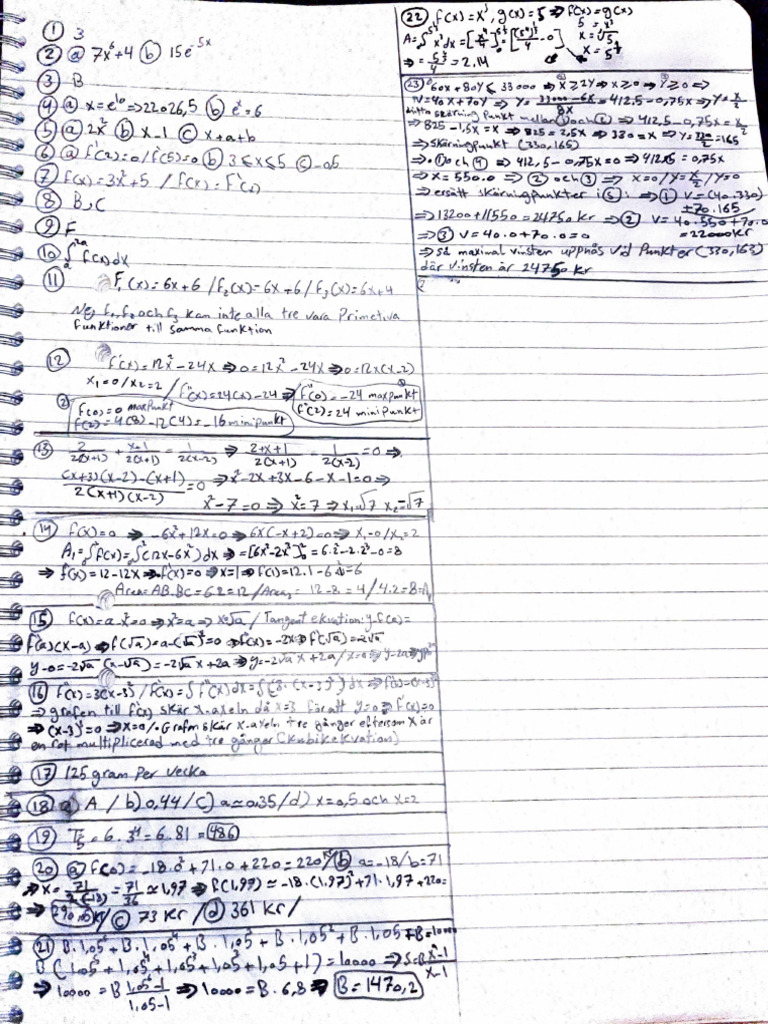 ① 3
② a 7x⁶+4 b 15e⁵ˣ
③ B
④ a x=e¹⁰ ⇒ 22026,5 b eˣ=6
⑤ a 2x² b x-1 c x+a+b
⑥ a f'(2)=0/f'(5)=0 b 3≤x≤5 c -0,5
⑦ f(x)=3x²+5 /
⑧ B,C
⑨ F
⑩ ∫ f(x)dx
⑪ F₁(x)=6x+6/f₂(x)=6x+6/f₃(x)=6x+4
Nej f₁,f₂ och f₃ kan inte alla tre vara Primetiva
funktioner till samma funktion
⑫ f'(x)=12x²-24x ⇒ 0=12x²-24x ⇒ 0=12x(x-2)
x₁=0/x₂=2 / f"(x)=24(x)-24 ⇒ f"(0)=-24 maxpunkt
f"(2)=24 minipunkt
f(0)=0 maxpunkt
f(2)=4(8)-12(4)=-16 minipunkt
⑬ 2/2(x+1) + x-1/2(x+1) - 1/2(x-2) ⇒ 2+x+1/2(x+1) - 1/2(x-2) =0 ⇒
(x+3)(x-2)-(x+1)/2(x+1)(x-2) =0 ⇒ x²-2x+3x-6-x-1=0 ⇒
x²-7=0 ⇒ x²=7 ⇒ x₁=√7 x₂=-√7
⑭ f(x)=0 ⇒ -6x²+12x=0 ⇒ 6x(-x+2)=0 ⇒ x₁=0/x₂=2
A₁=∫f(x)=∫(12x-6x²)dx ⇒ =[6x²-2x³]=6.2²-2.2³-0=8
⇒ f'(x)=12-12x ⇒ f'(x)=0 ⇒ x=1 ⇒ f(1)=12.1-6.1²=6
Area=AB.BC=6.2=12/Area₂ = 12-8=4/4.2=8=A₁
⑮ f(x)=a-x²=0 ⇒ x²=a ⇒ x=√a / Tangent ekvation: y-f(a)=
f'(a)(x-a) ⇒ f(√a)=a-(√a)²=0 ⇒ f'(x)=-2x ⇒ f'(√a)=-2√a
y-0=-2√a (x-√a)=-2√a x+2a ⇒ y=-2√a x+2a/x=0 ⇒ y=2a
⑯ f"(x)=3(x-3)²/f'(x)=∫f"(x)dx=∫(3.(x-3)²)dx ⇒ f'(x)=(x-3)³
⇒ grafen till f'(x) skär x-axeln då x=3 för att y=0 ⇒ f'(x)=0
⇒ (x-3)³=0 ⇒ Grafen skär x-axeln tre gånger eftersom x är
en rot multiplicerad med tre gånger (kubikekvation)
⑰ 125 gram Per vecka
⑱ a) A / b) 0,44/c) a≈0,35/d) x=0,5 och x=2
⑲ T₅=6.3⁴=6.81=486
⑳ a f(0)=-18.0²+71.0+220=220 b a=-18/b=71
⇒ x=-71/2.(-18) = 71/36 ≈1,97 ⇒ f(1,97)≈-18.(1,97)²+71.1,97+220=
⇒ 290,0 kr/ c 73 kr/ d 361 kr/
㉑ B.1,05⁵+B.1,05⁴+B.1,05³+B.1,05²+B.1,05+B=10000
B(1,05⁵+1,05⁴+1,05³+1,05²+1,05+1)=10000 ⇒ S=B xⁿ-1/x-1
⇒ 10000=B 1,05⁶-1/1,05-1 ⇒ 10000=B.6,8 ⇒ B=1470,2
㉒ f(x)=x³, g(x)=5 ⇒ f(x)=g(x)
5=x³
x=∛5
x=5^⅓
⇒ = 2,14
㉓ 60x+80y≤33000 ⇒ x≥2y ⇒ x≥0 ⇒ y≥0 ⇒
V=40x+70y ⇒ y= =412,5-0,75x ⇒ y=x/2
skärning Punkt mellan ① och ② ⇒ 412,5-0,75x=x/2
⇒ 825-1,5x=x ⇒ 825=2,5x ⇒ 330=x ⇒ y=330/2=165
⇒ skärningpunkt (330,165)
⇒ ① och ④ ⇒ 412,5-0,75x=0 ⇒ 412,5=0,75x
⇒ x=550.0 ⇒ ② och ③ ⇒ x=0/y=x/2/y=0
⇒ ersätt skärningpunkter i ⑤: ⇒ ① V=(40.330)
+70.165
⇒ 13200+11550=24750 kr ⇒ ② V=40.550+70.0
=22000kr
⇒ ③ V=40.0+70.0=0
⇒ så maximal vinsten uppnås vid Punkter (330,165)
där vinsten är 24750 kr